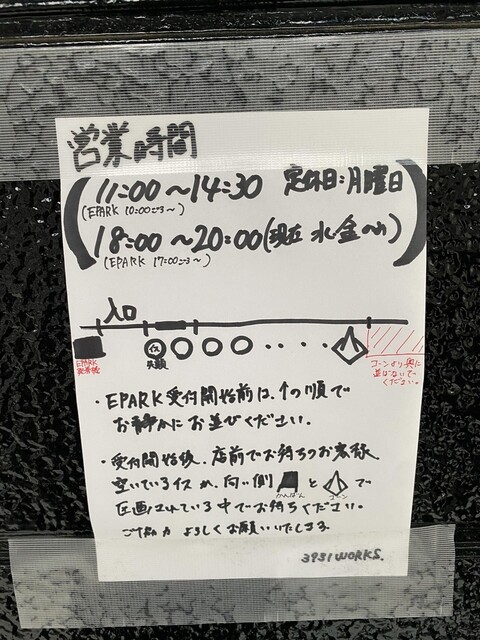 営業時間
11:00〜14:30 定休日:月曜日
(EPARK 10:00ごろ〜)
18:00〜20:00(現在 水金のみ)
(EPARK 17:00ごろ〜)
入口
EPARK
先頭
コーンより奥に
並ばないで
ください。
・EPARK受付開始前は、↑の順で
お静かにお並びください。
・受付開始後、店前でお待ちのお客様
空いているイスか、向い側 と で
かんばん コーン
区画されている中でお待ちください。
ご協力 よろしくお願いいたします
3931WORKS.